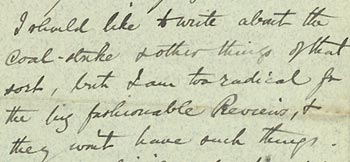 I should like to write about the
Coal-strike & other things of that
sort, but I am too radical for
the big fashionable Reviews, &
they wont have such things.